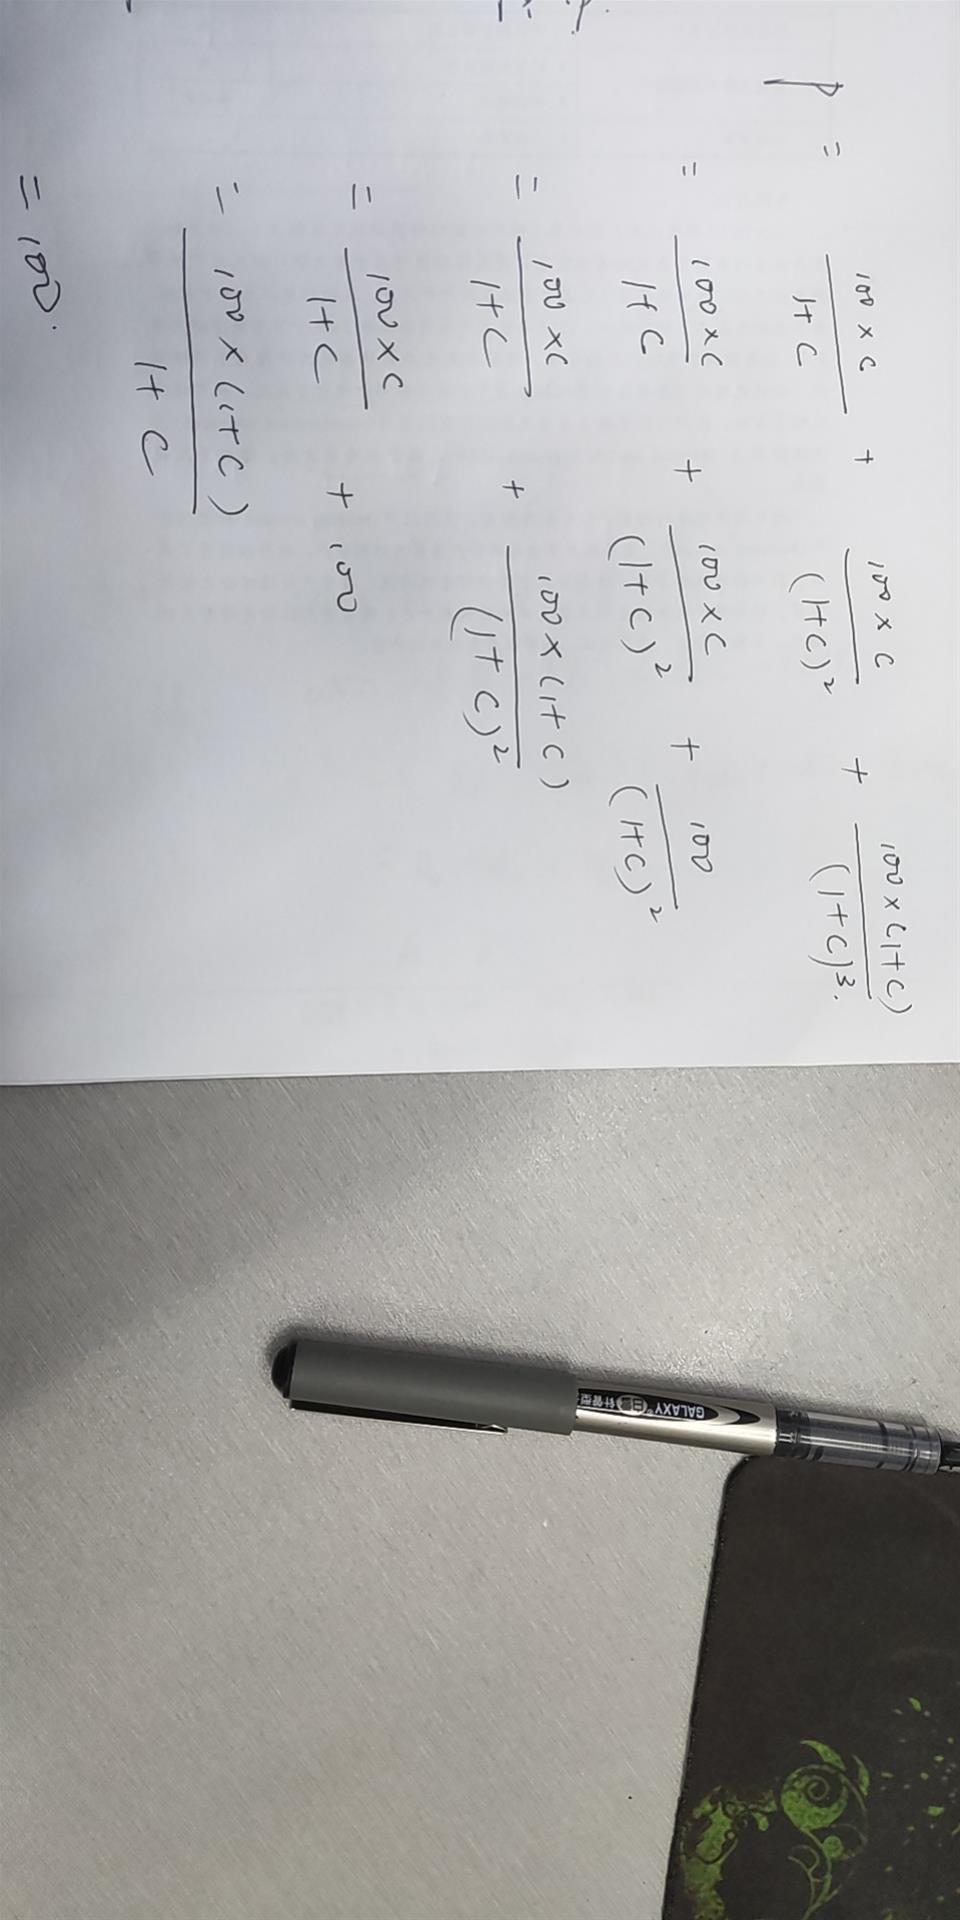 P = 100×C / 1+C + 100×C / (1+C)² + 100×(1+C) / (1+C)³.
= 100×C / 1+C + 100×C / (1+C)² + 100 / (1+C)²
= 100×C / 1+C + 100×(1+C) / (1+C)²
= 100×C / 1+C + 100
= 100×(1+C) / 1+C
= 100.
GALAXY